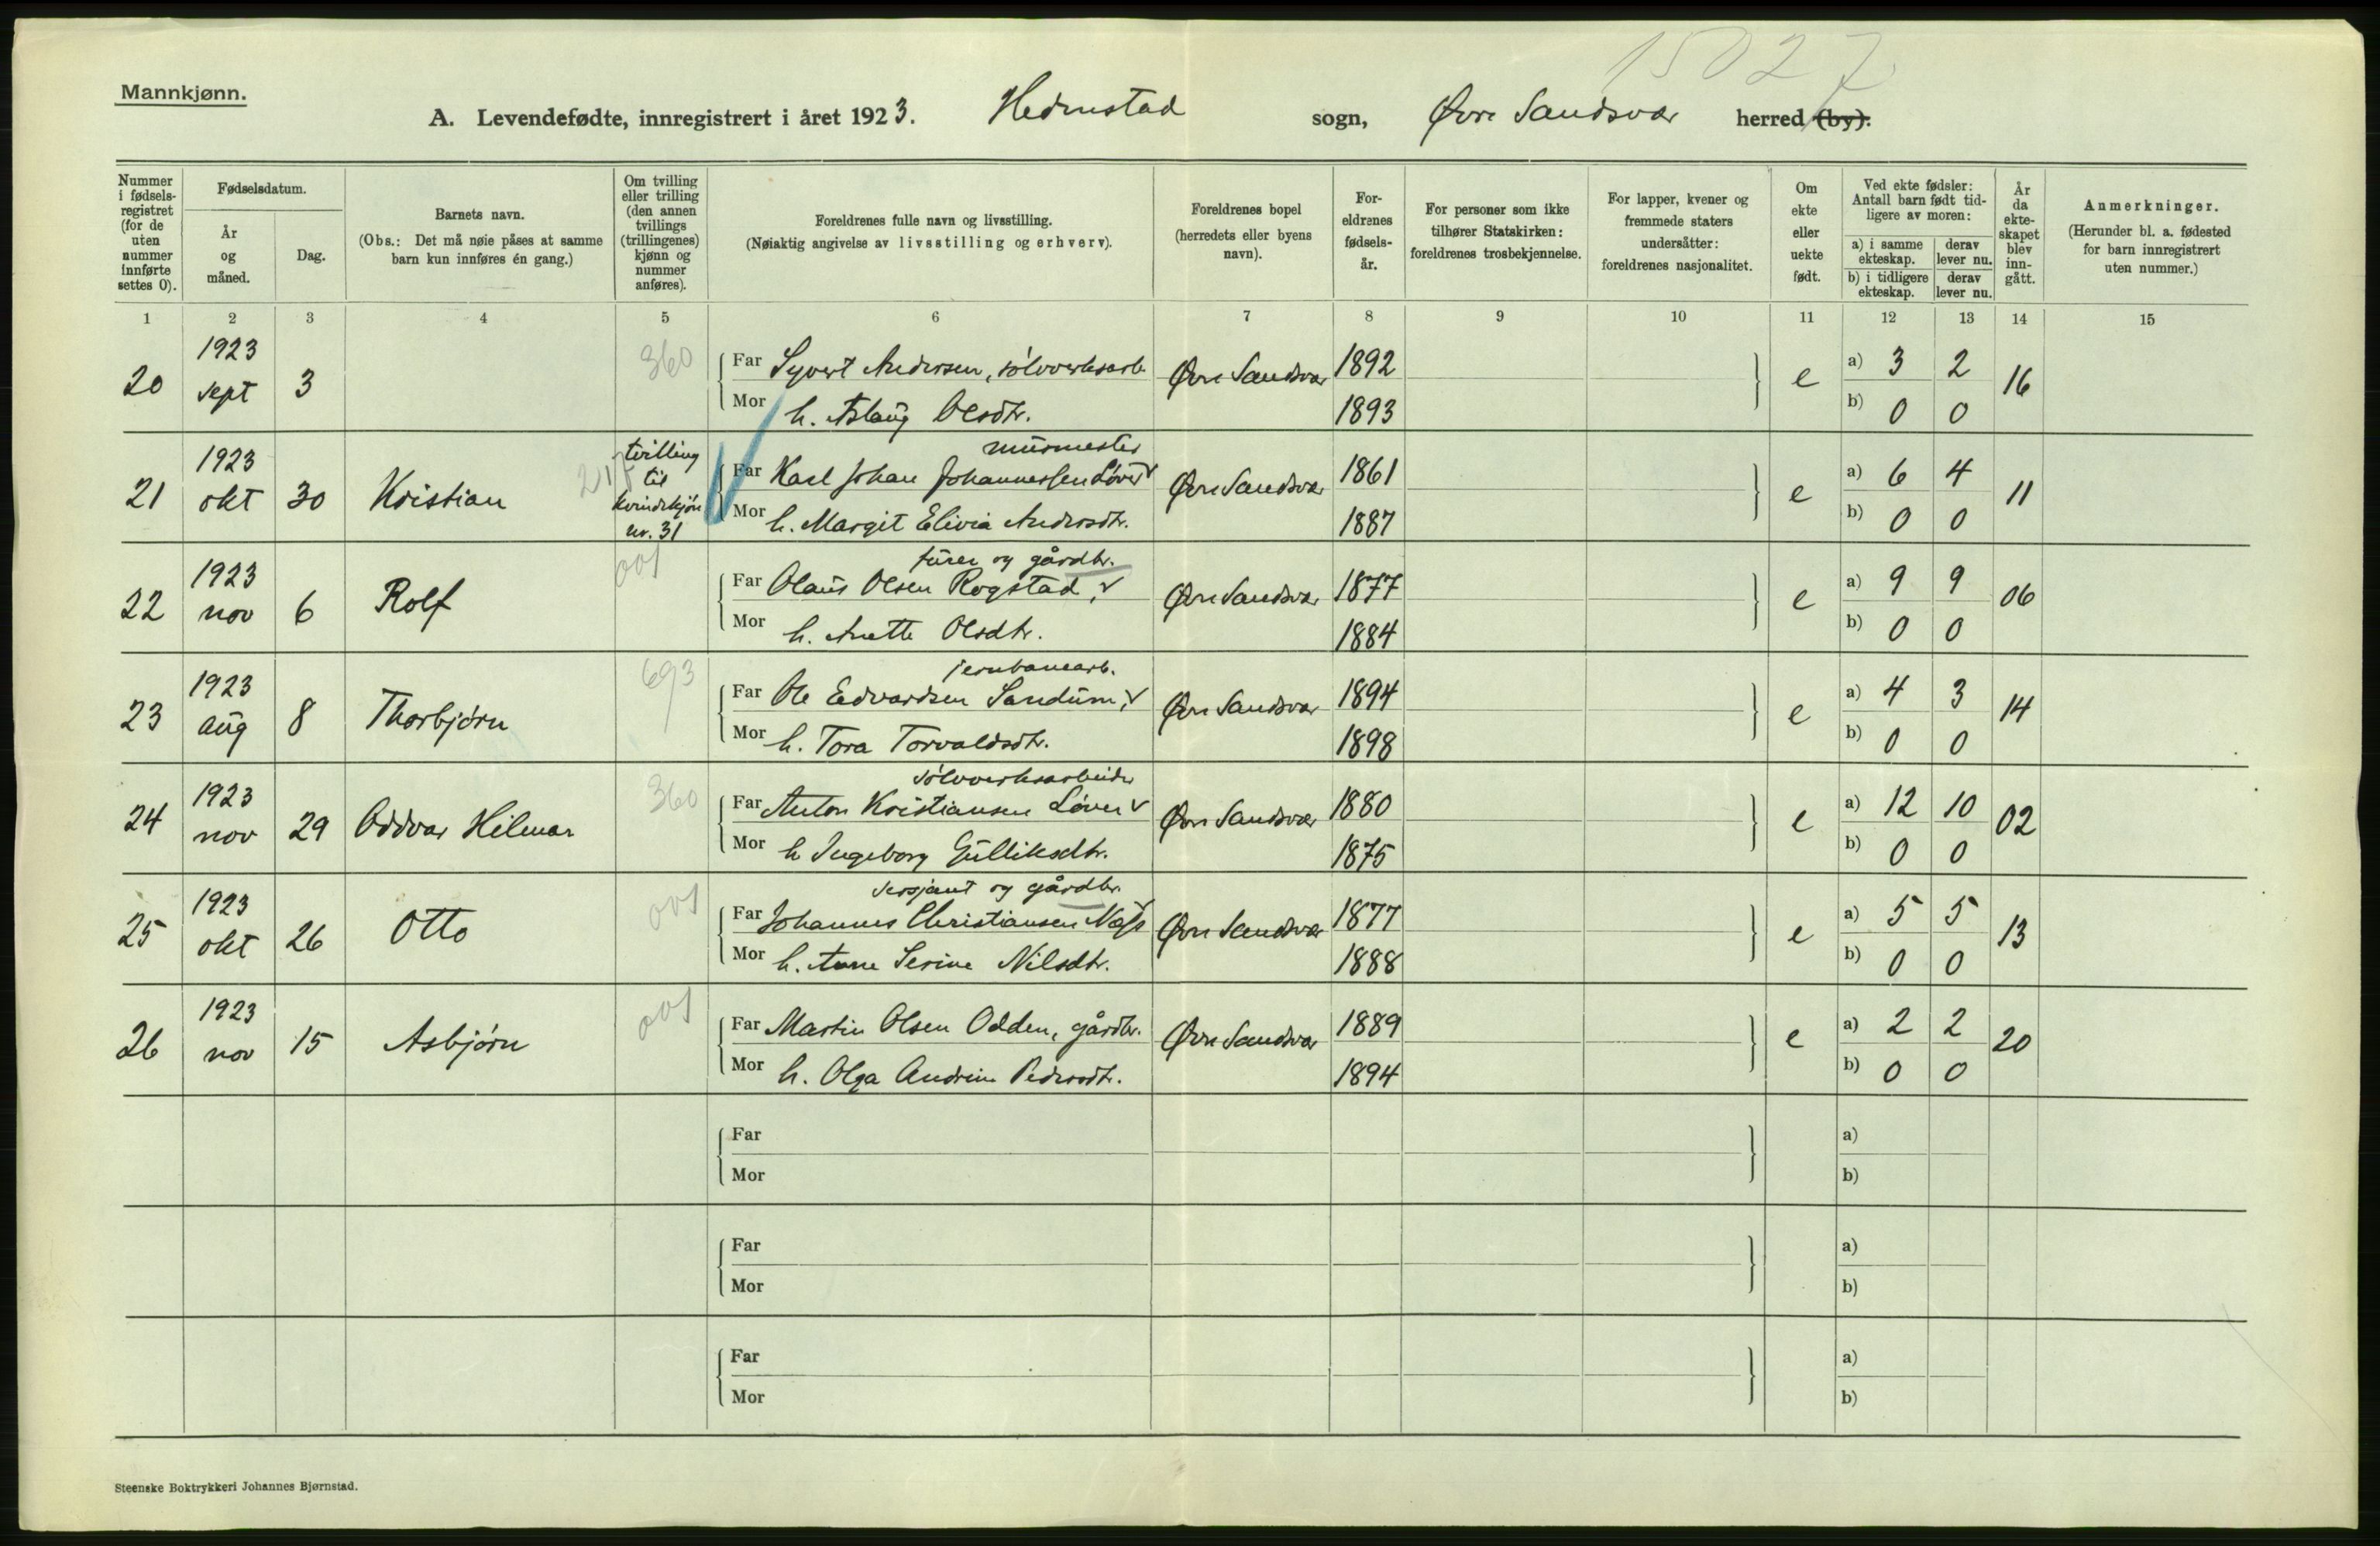 1527
Mannkjønn.
A. Levendefødte, innregistrert i året 1923. Hedenstad sogn, Øvre Sandsvær herred (by).
Nummer i fødselsregistret (for de uten nummer innførte settes 0).
Fødselsdatum.
År og måned.
Dag.
Barnets navn.
(Obs.: Det må nøie påses at samme barn kun innføres én gang.)
Om tvilling eller trilling (den annen tvillings (trillingenes) kjønn og nummer anføres).
Foreldrenes fulle navn og livsstilling.
(Nøiaktig angivelse av livsstilling og erhverv).
Foreldrenes bopel (herredets eller byens navn).
Foreldrenes fødselsår.
For personer som ikke tilhører Statskirken: foreldrenes trosbekjennelse.
For lapper, kvener og fremmede staters undersåtter: foreldrenes nasjonalitet.
Om ekte eller uekte født.
Ved ekte fødsler: Antall barn født tidligere av moren:
a) i samme ekteskap.
derav lever nu.
b) i tidligere ekteskap.
derav lever nu.
År da ekteskapet blev inngått.
Anmerkninger.
(Herunder bl. a. fødested for barn innregistrert uten nummer.)
1 2 3 4 5 6 7 8 9 10 11 12 13 14 15
20 1923 sept 3 360
Far Syvert Andersen, sølvverksarb. Øvre Sandsvær 1892 e a) 3 2 16
Mor h. Aslaug Olsdtr. 1893 b) 0 0
21 1923 okt 30 Kristian tvilling til kvindekjøn nr. 31
murmester
Far Karl Johan Johannessen Løver Øvre Sandsvær 1861 e a) 6 4 11
Mor h. Margit Elivia Andersdtr. 1887 b) 0 0
22 1923 nov 6 Rolf 001
furer og gårdbr.
Far Olaus Olsen Rogstad, Øvre Sandsvær 1877 e a) 9 9 06
Mor h. Anette Olsdtr. 1884 b) 0 0
23 1923 aug 8 Thorbjørn 693
jernbanearb.
Far Ole Edvardsen Sandum, Øvre Sandsvær 1894 e a) 4 3 14
Mor h. Tora Torvaldsdtr. 1898 b) 0 0
24 1923 nov 29 Oddvar Hilmar 360
sølvverksarbeider
Far Anton Kristiansen Løver Øvre Sandsvær 1880 e a) 12 10 02
Mor h Ingeborg Gulliksdtr. 1875 b) 0 0
25 1923 okt 26 Otto 001
sersjant og gårdbr.
Far Johannes Christiansen Næss Øvre Sandsvær 1877 e a) 5 5 13
Mor h. Anne Serine Nilsdtr. 1888 b) 0 0
26 1923 nov 15 Asbjørn 001
Far Martin Olsen Odden, gårdbr. Øvre Sandsvær 1889 e a) 2 2 20
Mor h. Olga Andrine Pedersdtr. 1894 b) 0 0
Far a)
Mor b)
Far a)
Mor b)
Far a)
Mor b)
Steenske Boktrykkeri Johannes Bjørnstad.